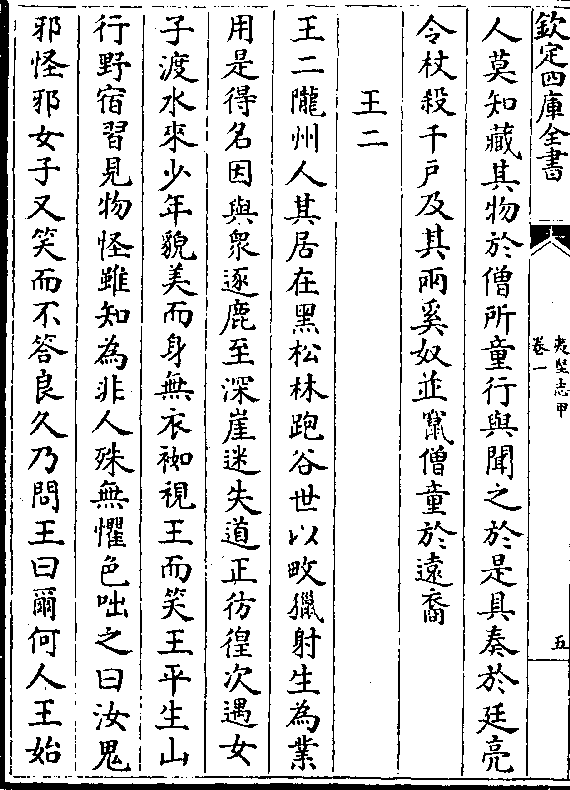 欽定四庫全書
夷堅志甲
卷一
五
人莫知藏其物於僧所童行與聞之於是具奏於廷亮
令杖殺千戶及其兩奚奴並竄僧童於遠裔
王二
王二隴州人其居在黑松林跑谷世以畋獵射生為業
用是得名因與衆逐鹿至深崖迷失道正彷徨次遇女
子渡水來少年貌美而身無衣袽視王而笑王平生山
行野宿習見物怪雖知為非人殊無懼色咄之曰汝鬼
邪怪邪女子又笑而不答良久乃問王曰爾何人王始